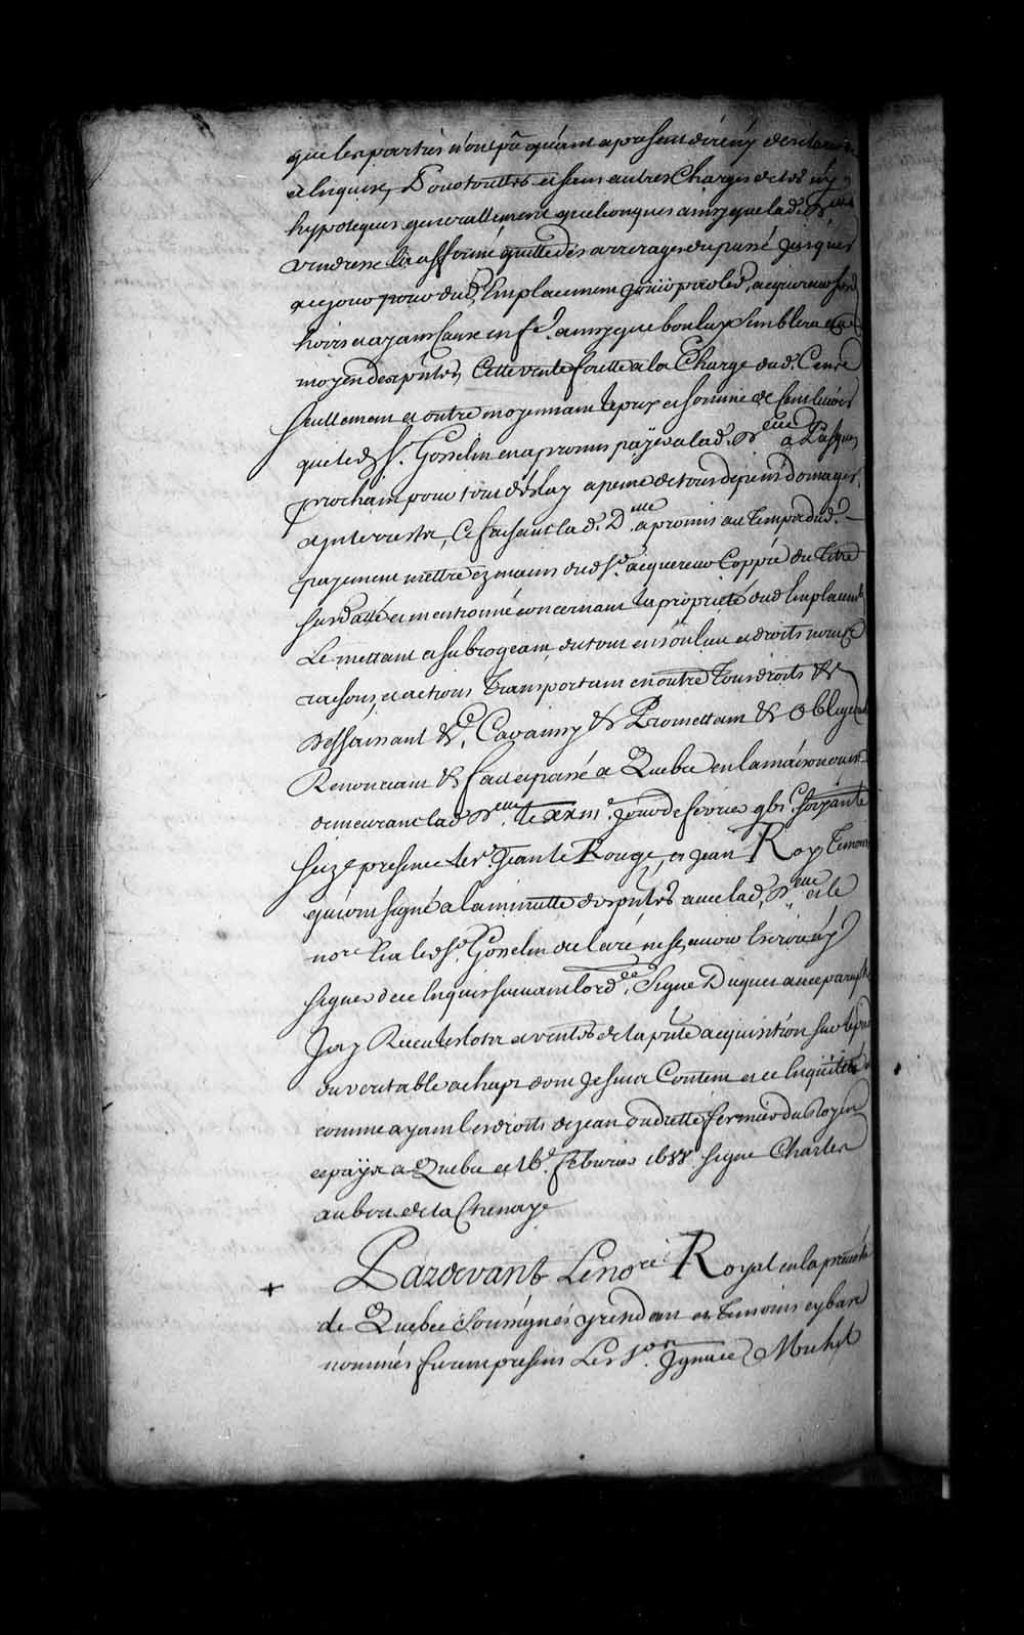 que les parties n'ont pû quánt a present dire ny declarer
et enquises, Pour touttes et sans autres Charges dettes ny
hypoteques generallement quelconques ainsy que lad. D.elle
venderesse l'a affirmé quitte des arrerages du passé jusques
a ce jour pour dud. Emplacement jouir par led. acquereur ses
hoirs et ayans Cause en f.e ainsy que bon luy Semblera au
moyen des pntes, Cette vente faitte a la Charge dud. Cens
seullement et outre moyennant le prix et somme de Cent livres
que led. S.r Gosselin en a promis payer a lad. D.elle a Pasques
prochain pour tout délay a peine de tous depens domages
et Interrestz, Ce faisant lad. D.elle a promis au temps dud.
payement mettre ez mains dud. S.r acquereur Coppie du Titre
susdatté et mentionné concernant la proprieté dud Emplacem.t
Le mettant et subrogeant du tout en son lieu et droits noms
raisons et actions Transportant en outre Tous droits &c
Dessaisant &c. Car ainsy &c Promettant &c Obligeant
Renonciant &c fait et passé a Quebec en la maison ou est
demeurante lad D.elle le xxiii.e jour de fevrier gbi.c soixante
seize presence des S.rs Jean le Rouge, et Jean Roy Temoins
qui ont signé a la minutte des pntes avec lad. D.elle et le
no.re Et a led S.r Gosselin declaré ne sçavoir Escrire ny
signer de ce Enquis suivant l'ord.ce Signé Duquet avec paraphe
J'ay Receu les lotz et ventes de la pnte acquisition sur le pied
du veritable achapt dont je suis Content et ce En qualité
comme ayant les droits de jean oudiette fermier du Roy en
ce païs a Quebec ce 16.e febvrier 1688. signé Charles
aubert de la Chenaye
+ Pardevant Le no.re Royal en la prevosté
de Quebec Soussigné y residant et Temoins cy bas
nommés furent presens Les S.rs Ignace Michel